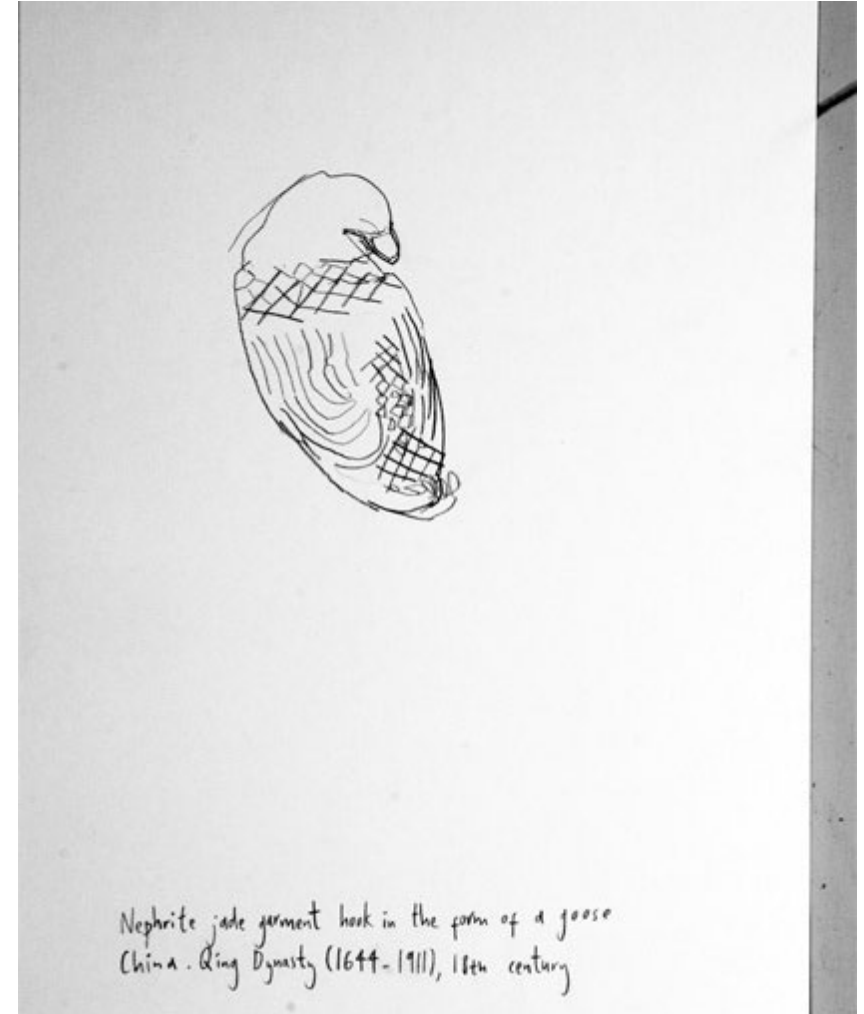 Nephrite jade garment hook in the form of a goose
China. Qing Dynasty (1644-1911), 18th century